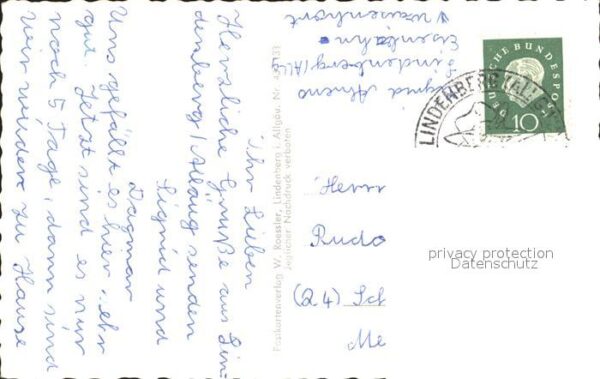 Ihr Lieben
Herzliche Grüße aus Lin-
denberg/Allgäu senden
Sigrid und
Dagmar
Uns gefällt es hier sehr
gut. Jetzt sind es nur
noch 5 Tage, dann sind
wir wieder zu Hause
Sigrid
Lindenberg/Allg
Eisenbahn-
Waisenhort
Postkartenverlag W. Roessler, Lindenberg i. Allgäu, Nr.
Jeglicher Nachdruck verboten
DEUTSCHE BUNDESPOST
10
LINDENBERG (ALLGÄU)
Herrn
Rudo
(24) Sch
Me
privacy protection
Datenschutz